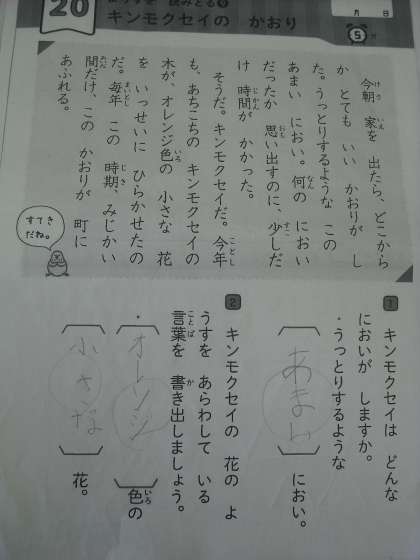 20
ようすを 読みとる⑨
キンモクセイの かおり
月 日
5分
今朝、家を 出たら、どこから
か とても いい かおりが し
た。うっとりするような この
あまい におい。何の におい
だったか 思い出すのに、少しだ
け 時間が かかった。
そうだ。キンモクセイだ。今年
も、あちこちの キンモクセイの
木が、オレンジ色の 小さな 花
を いっせいに ひらかせたの
だ。毎年 この 時期、みじかい
間だけ、この かおりが 町に
あふれる。
すてき
だね。
1 キンモクセイは どんな
においが しますか。
・うっとりするような
あまい におい。
2 キンモクセイの 花の よ
うすを あらわして いる
言葉を 書き出しましょう。
・オレンジ 色の
小さな 花。